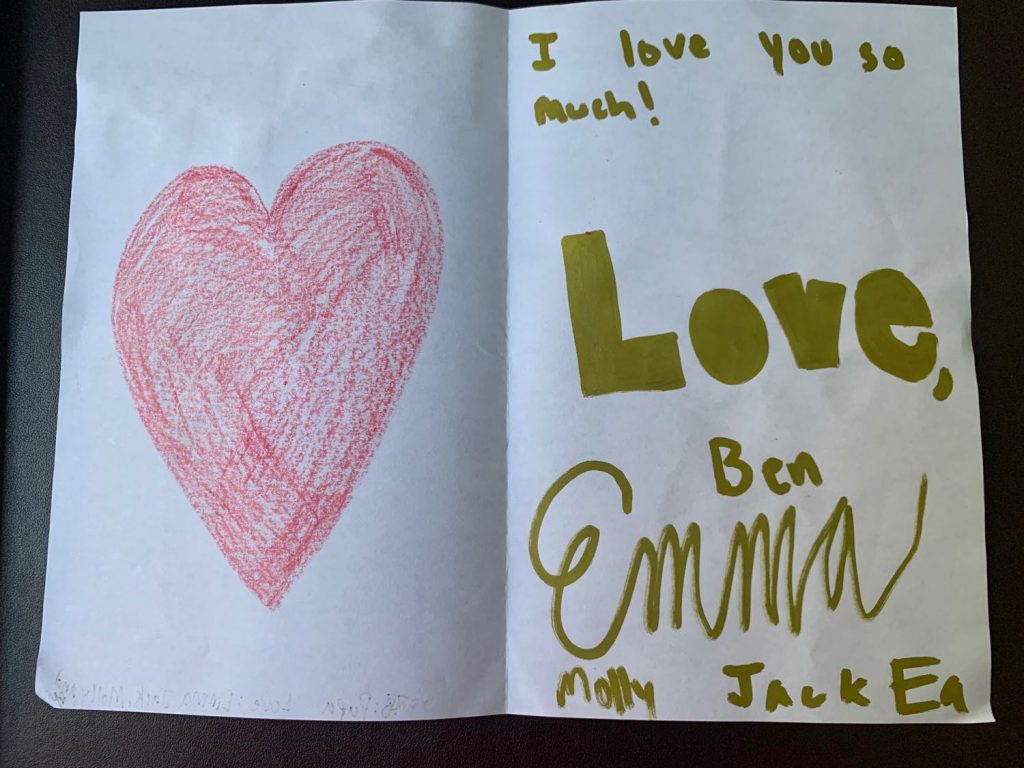 I love you so
much!
Love,
Ben
Emma
Molly Jack Ea
To: Papa Love: Emma, Jack, Molly